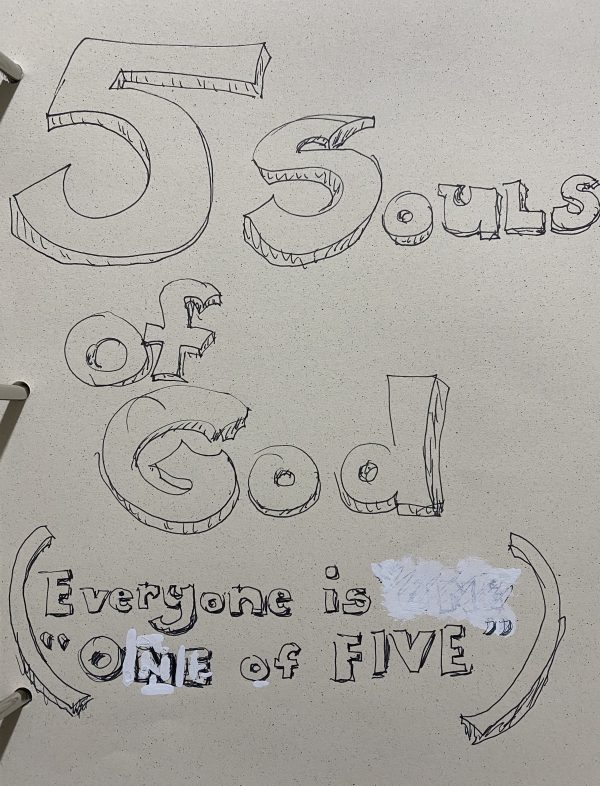 5 Souls
of
God
(Everyone is
"ONE of FIVE")